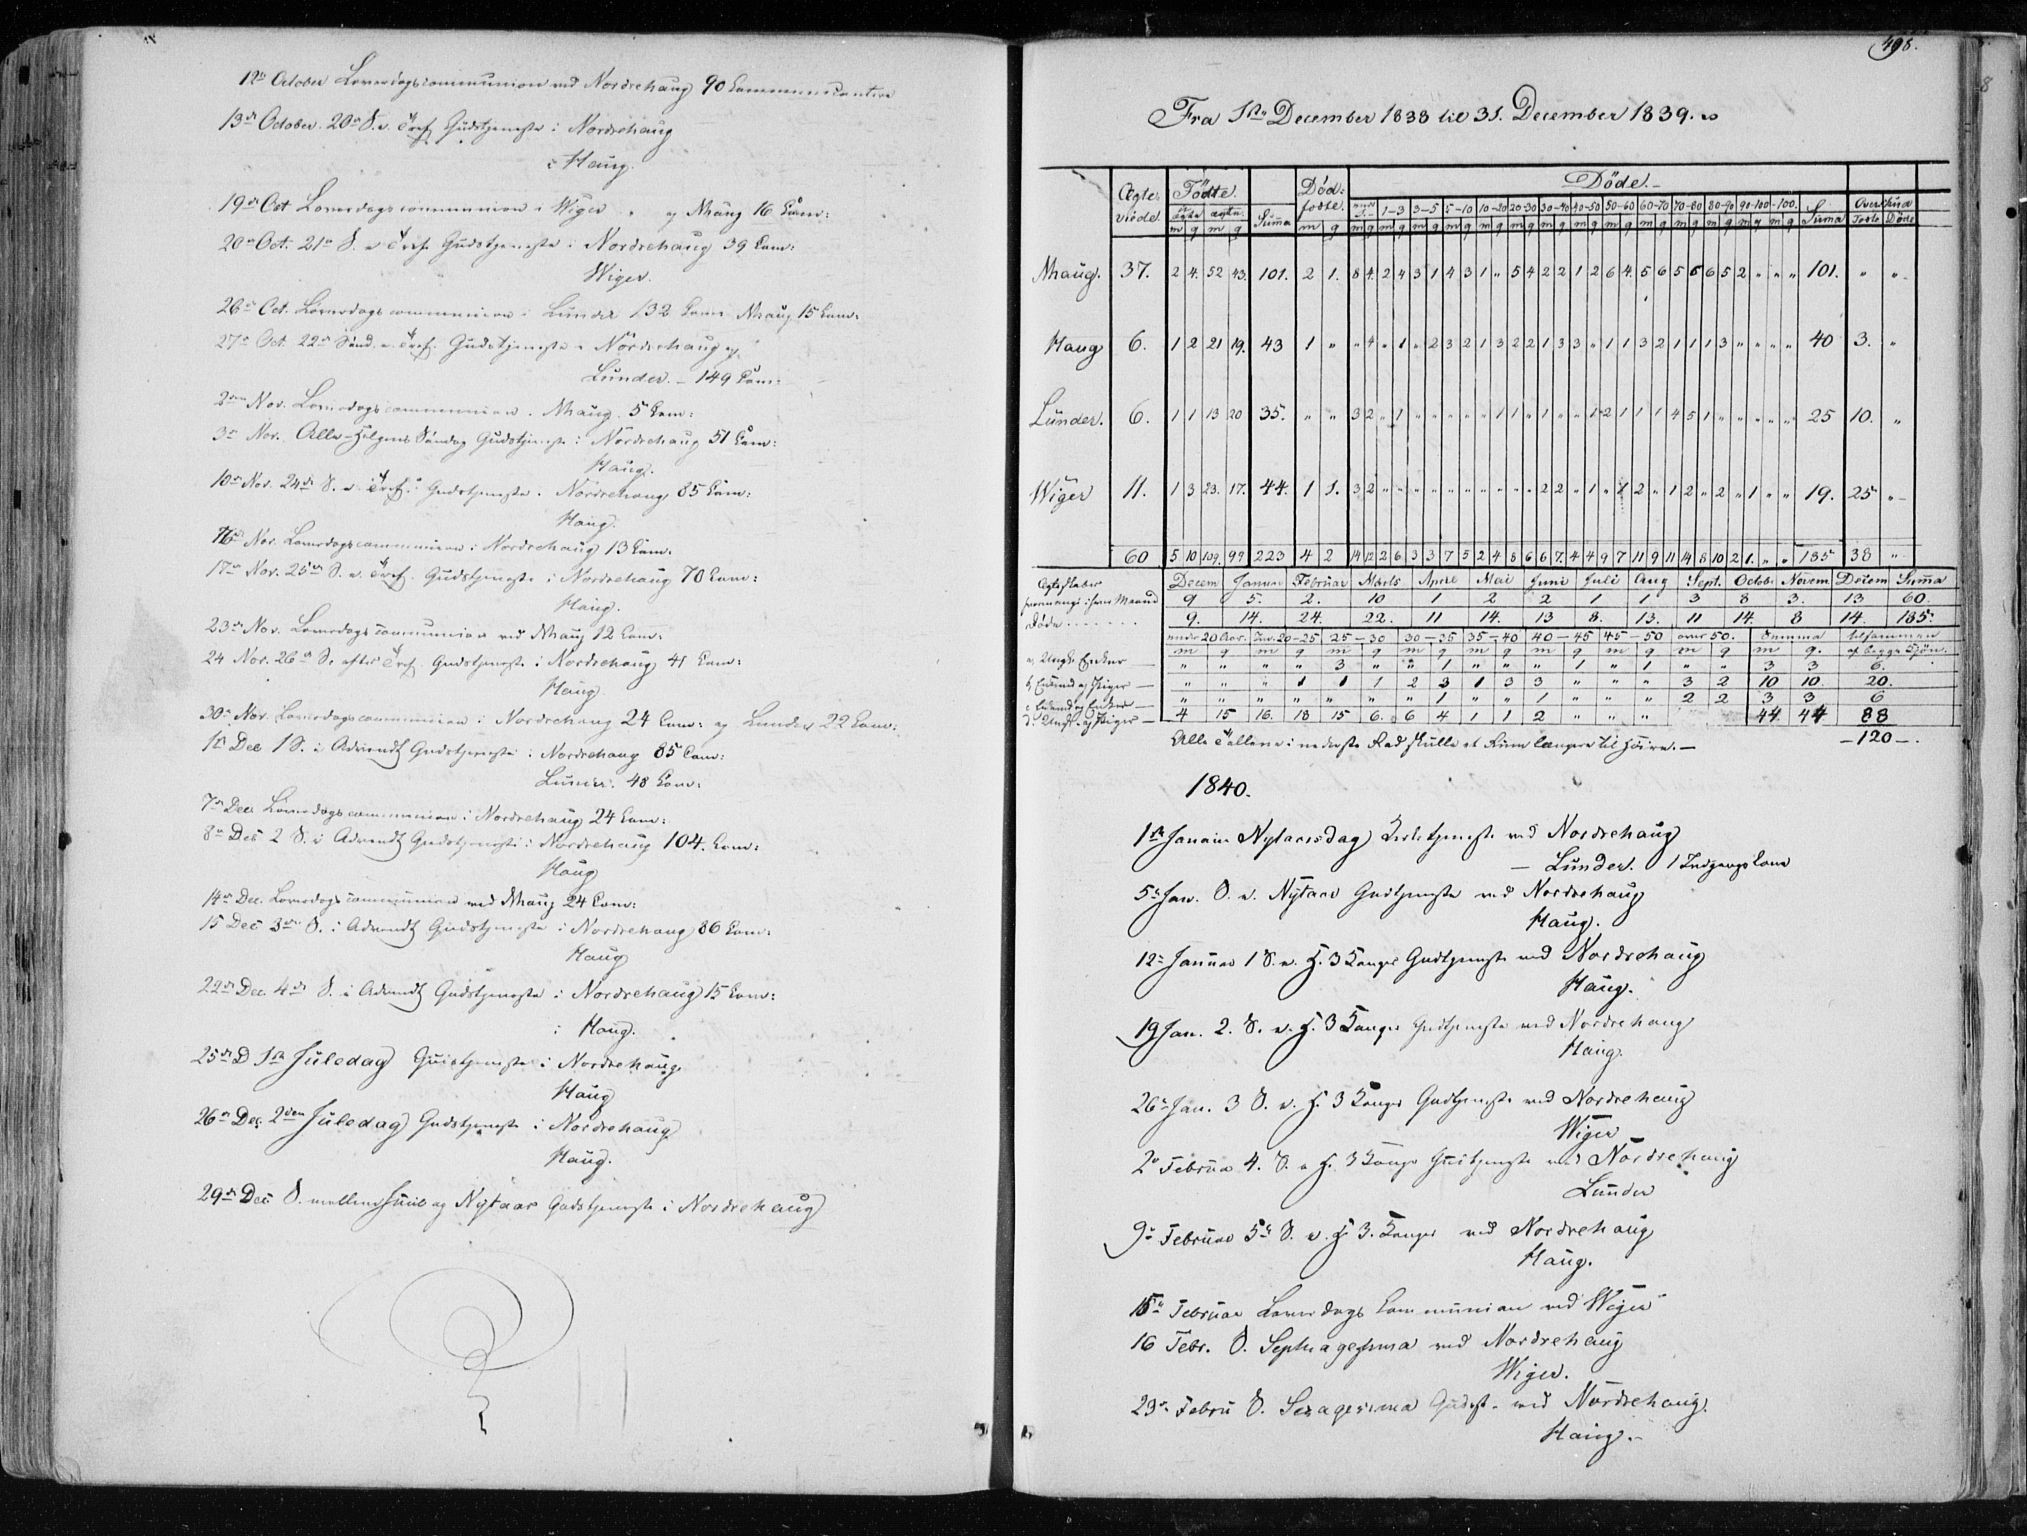 12te October Løverdagscommunion ved Nordrehaug 90 Communicantere
13de October. 20de S. e. Tref Gudstjeneste i Nordrehaug
i Haug.
19de Oct Løverdagscommunion i Wiger og Nhaug 16 Com:
20de Oct. 21de S. e Tref. Gudstjeneste i Nordrehaug 39 Com:
Wiger.
26de Oct. Løverdagscommunion i Lunder 132 Com Nhaug 15 Com:
27de Oct. 22de Sønd. e. Tref. Gudstjeneste i Nordrehaug og
Lunder. – 149 Com:
2den Nov. Løverdagscommunion. Nhaug. 5 Com:
3de Nov. Alle-Helgens Søndag Gudstjeneste i Nordrehaug 51 Com:
Haug.
10de Nov. 24de S. e. Tref. Gudstjeneste i Nordrehaug 85 Com:
Haug.
16de Nov. Løverdagscommunion i Nordrehaug 13 Com:
17de Nov. 25de S. e. Tref. Gudstjeneste i Nordrehaug 70 Com:
Haug.
23de Nov. Løverdagscommunion ved Nhaug 12 Com:
24 Nov. 26de S. efter Tref. Gudstjeneste i Nordrehaug 41 Com:
Haug.
30te Nov. Løverdagscommunion i Nordrehaug 24 Com: og Lunder 22 Com:
1ste Dec 1 S. i Advendt Gudstjeneste i Nordrehaug 85 Com:
Lunder. 48 Com:
7de Dec Løverdagscommunion i Nordrehaug 24 Com:
8de Dec 2 S. i Advendt Gudstjeneste i Nordrehaug 104. Com:
Haug
14de Dec. Løverdagscommunion ved Nhaug 24 Com:
15 Dec 3die S. i Advendt Gudstjeneste i Nordrehaug 86 Com:
Haug
22de Dec. 4de S. i Advendt Gudstjeneste i Nordrehaug 15 Com:
i Haug.
25de D 1ste Juledag Gudstjeneste i Nordrehaug
Haug
26de Dec. 2den Juledag Gudstjeneste i Nordrehaug
Haug.
29de Dec S. mellem Juul og Nytaar Gudstjeneste i Nordrehaug
498.
Fra 1ste December 1838 til 31. December 1839.
Ægteviede. Fødte. Summa Dødfødte. Døde. Overskud
uægte ægte under 1 1-3 3-5 5-10 10-20 20-30 30-40 40-50 50-60 60-70 70-80 80-90 90-100 -100. Suma Fødte Døde
m q m q m q m q m q m q m q m q m q m q m q m q m q m q m q m q m q
Nhaug. 37. 2 4. 52 43. 101. 2 1. 8 4. 2 4 3 1 4 3 1 " 5 4 2 2 1 2 6 4. 5 6 5 6 6 5 2 " " " 101. " "
Haug 6. 1 2 21 19. 43 1 " " 4 " 1 " 2 3 2 1 3 2 2 1 3 3 " 1 1 3 2 1 1 1 3 " " " " 40 3. "
Lunder. 6. 1 1 13 20 35. " " 3 2 " 1 " " " " " 1 1 " 1 " " 1 2 1 1 1 4 5 1 " " " " " 25 10. "
Wiger 11. 1 3 23. 17. 44. 1 1. 3 2 " " " " " " " " " " 2 2 " 1 " 1 2 " 1 2 " 2 " 1 " " 19. 25 "
60 5 10 109. 99 223 4 2 14 12 2 6 3 3 7 5 2 4 8 6 6 7. 4 4 9 7 11 9 11 14 8 10 2 1. " " 185 38 "
Decem Januar Februar Marts Aprl Mai Juni Juli Aug Sept. Octobr Novem Decem Summa
Ægteskaber 9 5. 2. 10 1 2 2 1 1 3 8 3. 13 60.
Døde 9. 14. 24. 22. 11 14. 13 8. 13. 11 14. 8 14. 185.
under 20 Aar. 20-25 25-30 30-35 35-40 40-45 45-50 over 50. Summa tilsammen
m q m q m q m q m q m q m q m q m q. af begge Kjøn.
a, Ungk. Enker " " " " 3 " " 1 " " " 1 " 1 " " 3 3 6.
b, Enkemd og Piger " " " 1 1 1 2 3 1 3 3 " " " 3 2 10 10. 20.
c Enkemd og Enker " " " " " " " 1 " " 1 " " " 2 2 3 3 6
d. Ungk. og Piger 4 15 16. 18 15 6. 6 4 1 1 2 " " " 44 44 88
Alle Tallene i nederste Rad skulle et Rum længere til Høire.— –120–.
1840.
1ste Januar Nytaarsdag Kirketjeneste ved Nordrehaug
— Lunder. 1 Indgangskone
5te Jan. S. e. Nytaar Gudtjeneste ved Nordrehaug
Haug.
12te Januar 1 S. e. H. 3 Konger Gudtjeneste ved Nordrehaug
Haug.
19 Jan. 2. S. e. H. 3 Konger Gudtjeneste ved Nordrehaug
Haug.
26te Jan. 3 S. e. H. 3 Konger Gudtjeneste ved Nordrehaug
Wiger
2de Februar 4. S. e H. 3 Konger Gudtjeneste ved Nordrehaug
Lunder
9de Februar 5te S. e. H 3. Konger ved Nordrehaug
Haug.
15de Februar Løverdags Communion ved Wiger
16 Febr. S. Septuagesima ved Nordrehaug
Wiger.
23de Febru S. Sexagesima Gudst. ved Nordrehaug.
Haug.